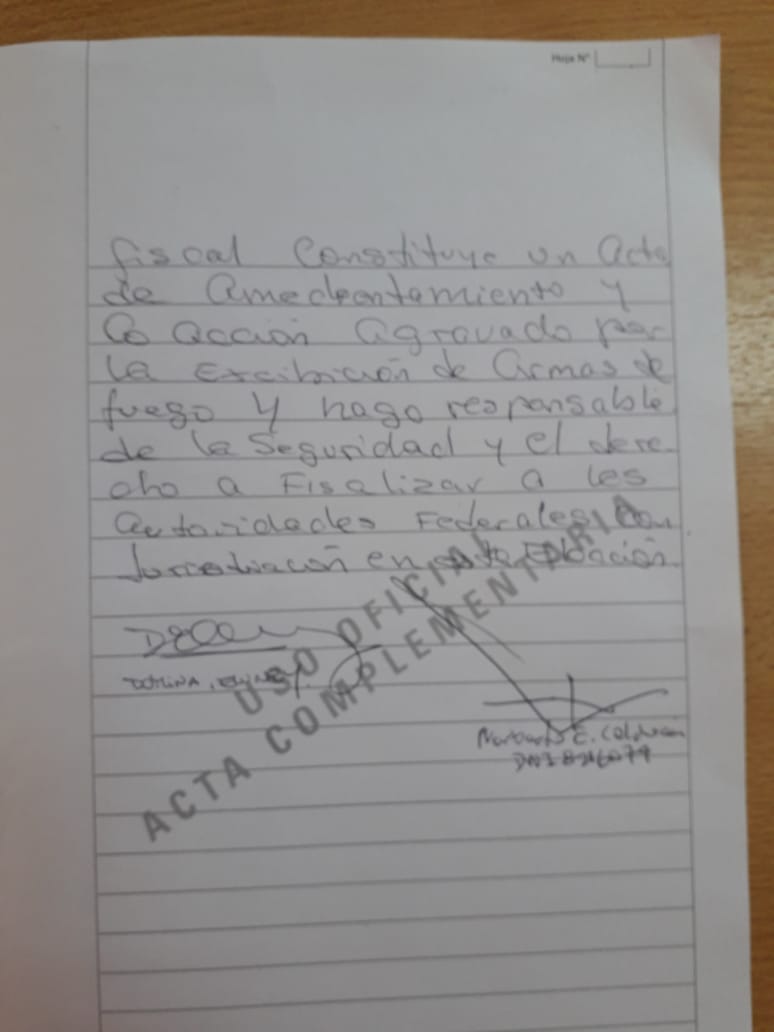 Hoja N°
fiscal Constituye un Acto
de Amedrentamiento y
Coacción agravado por
la Excibición de armas de
fuego y hago responsable
de la Seguridad y el dere
cho a Fiscalizar a les
autoridades Federales con
Jurisdiacción en
USO OFICIAL
ACTA COMPLEMENTARIA
E.
DNI